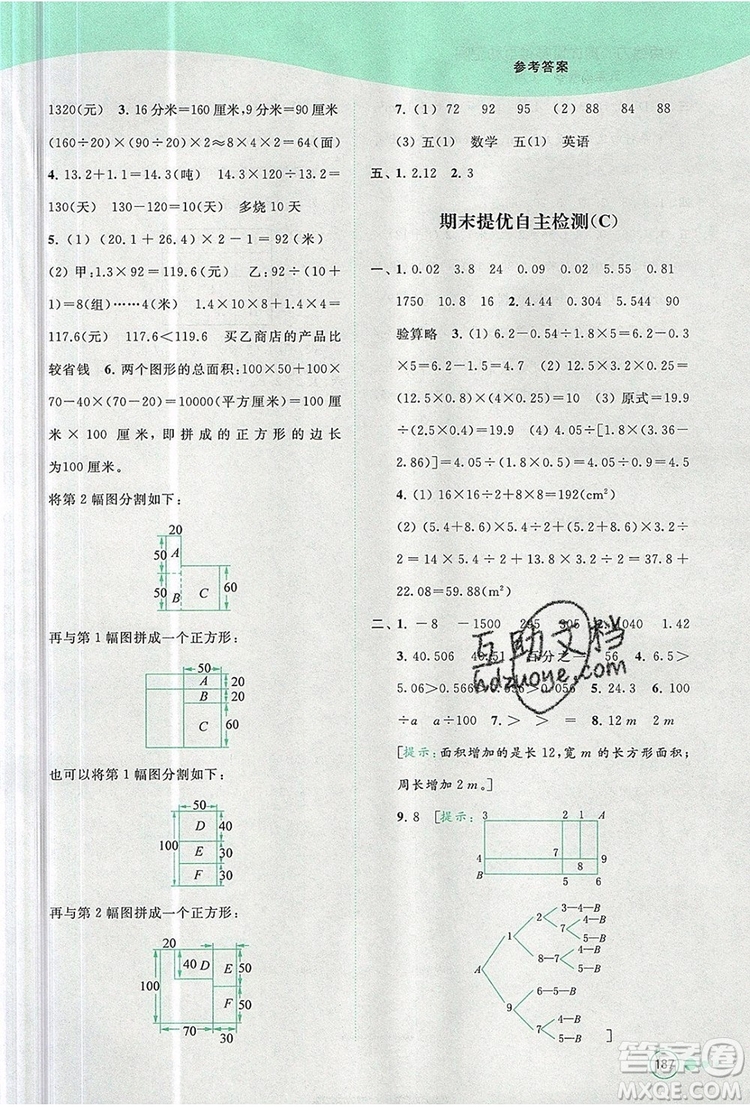 参考答案
1320(元) 3. 16 分米=160 厘米,9 分米=90 厘米
(160÷20)×(90÷20)×2≈8×4×2=64(面)
4. 13.2+1.1=14.3(吨) 14.3×130÷14.3=
130(天) 130-120=10(天) 多烧 10 天
5. (1) (20.1+25.9)×2=46×2=92(米)
(2) 甲:1.3×92=119.6(元) 乙:92÷(10+
1)=8(组)……4(米) 1.4×10×8+1.4×4=
117.6(元) 117.6<119.6 买乙商店的产品比
较省钱 6. 两个图形的总面积:100×50+100×
70-40×(70-20)=10000(平方厘米) 10000=100
×100 厘米,即拼成的正方形的边长
为100 厘米。
将第 2 幅图分割如下:
20
50
A
50
B
C
60
再与第 1 幅图拼成一个正方形:
50
A
20
B
20
C
60
也可以将第 1 幅图分割如下:
50
D
40
100
E
30
F
30
再与第 2 幅图拼成一个正方形:
20
40
D
E
50
100
F
50
70
30
7. (1) 72 92 95 88 84 88
(3) 五(1) 数学 五(1) 英语
五、1. 2.12 2. 3
期末提优自主检测(C)
一、1. 0.02 3.8 24 0.09 0.02 5.55 0.81
1750 10.8 16 2. 4.44 0.304 5.544 90
验算略 3. (1) 6.2-0.51÷0.34=6.2-
1.5=4.7 (2) 12.5×3.2×0.25=
(12.5×0.8)×(4×0.25)=10 (3) 原式=19.9
÷(2.5×0.4)=19.9 (4) 4.05÷[1.8×(3.6-
2.86)]=4.05÷
4. (1) 16×16÷2+8×8=192(cm²)
(2) (5.4+8.6)×2÷2+(5.4+8.6)×3.2÷
2=14×2÷2+13.8×3.2÷2=37.8+
22.08=59.88(m²)
二、1. -8 -1500 295 305 2. 1040 1.42
3. 40.506 40.51 百分之一 56 4. 6.5>
5.06>0.566>0.056 5. 24.3 6. 100
÷a a÷100 7. > > = 8. 12 m 2 m
[提示:面积增加的是长 12,宽 m 的长方形面积;
周长增加 2 m。]
9. 8 [提示:
3 2 1 A
4 7 8 9
B 5 6
A
1
2
3—4—B
7
4—B
5—B
8—7
4—B
5—B
9
6—5—B
8
5—B
7
4—B
5—B
]
互助文档
hdzuoye.com
187
答案圈
MXQE.COM